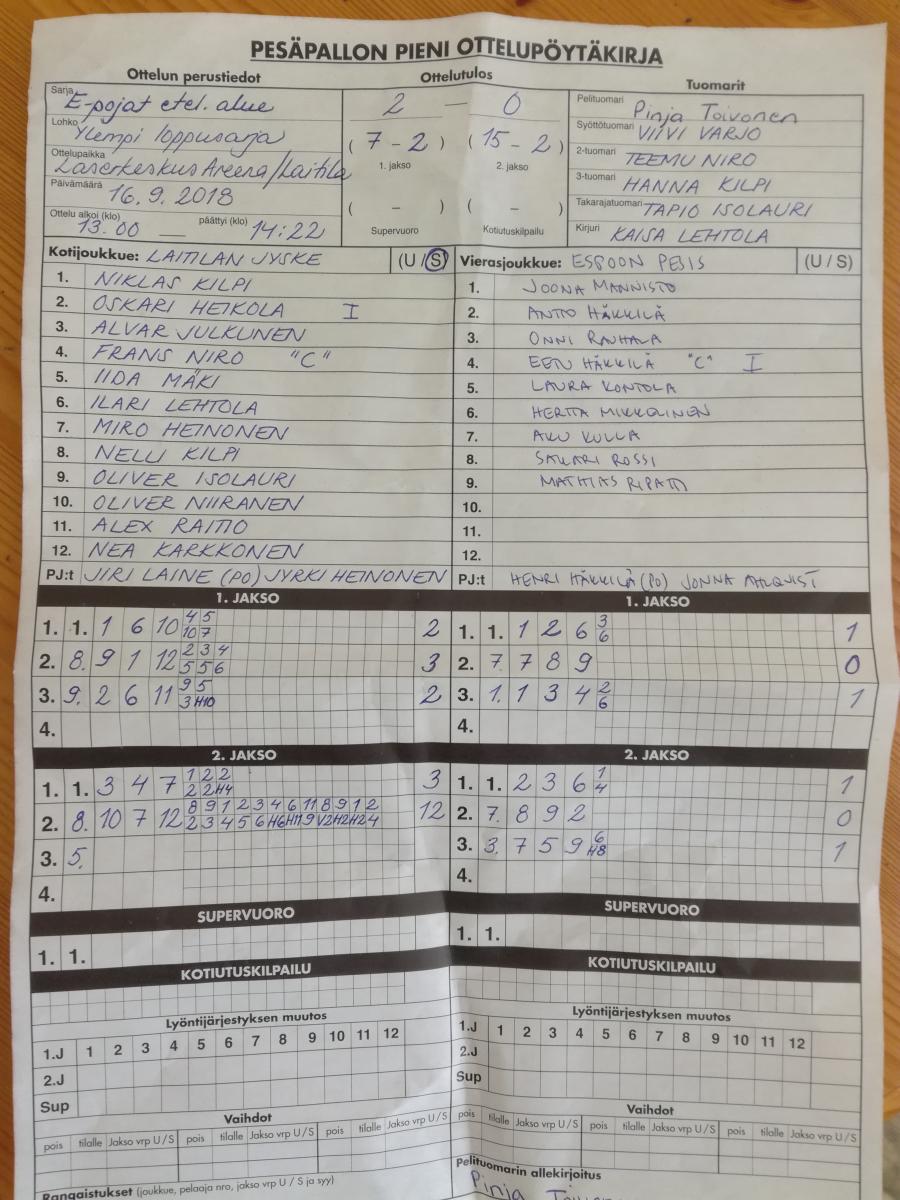 PESÄPALLON PIENI OTTELUPÖYTÄKIRJA
Ottelun perustiedot
Ottelutulos
Tuomarit
Sarja E-pojat etel. alue
Lohko Ylempi loppusarja
Ottelupaikka Laserkeskus Areena/Laitila
Päivämäärä 16.9.2018
Ottelu alkoi (klo) 13.00 — päättyi (klo) 14:22
2 — 0
(7 - 2) (15 - 2)
1. jakso 2. jakso
( - ) ( - )
Supervuoro Kotiutuskilpailu
Pelituomari Pinja Toivonen
Syöttötuomari VIIVI VARJO
2-tuomari TEEMU NIRO
3-tuomari HANNA KILPI
Takarajatuomari TAPIO ISOLAURI
Kirjuri KAISA LEHTOLA
Kotijoukkue: LAITILAN JYSKE (U/S)
1. NIKLAS KILPI
2. OSKARI HEIKOLA I
3. ALVAR JULKUNEN
4. FRANS NIRO "C"
5. IIDA MÄKI
6. ILARI LEHTOLA
7. MIRO HEINONEN
8. NELLI KILPI
9. OLIVER ISOLAURI
10. OLIVER NIIRANEN
11. ALEX RAITIO
12. NEA KARKKONEN
PJ:t JIRI LAINE (PO) JYRKI HEINONEN
Vierasjoukkue: ESPOON PESIS (U/S)
1. JOONA MANNISTO
2. ANTTO HÄKKILÄ
3. ONNI RAUHALA
4. EETU HÄKKILÄ "C" I
5. LAURA KONTOLA
6. HERTTA MIKKOLNEN
7. AKU KULLA
8. SAKARI ROSSI
9. MATHIAS RIPATTI
10.
11.
12.
PJ:t HENRI HÄKKILÄ (PO) JONNA AHLQVIST
1. JAKSO
1. 1. 1 6 10 4 5 2
10 7
2. 8. 9 1 12 2 3 4 3
5 5 6
3. 9. 2 6 11 9 5 2
3 H10
4.
1. JAKSO
1. 1. 1 2 6 3 1
6
2. 7. 7 8 9 0
3. 1. 1 3 4 2 1
6
4.
2. JAKSO
1. 1. 3 4 7 1 2 2 3
2 2 H4
2. 8. 10 7 12 8 9 1 2 3 4 6 11 8 9 1 2 12
2 3 4 5 6 H6 H11 9 V2 H2 H2 4
3. 5.
4.
2. JAKSO
1. 1. 2 3 6 1 1
4
2. 7. 8 9 2 0
3. 3. 7 5 9 6 1
H8
4.
SUPERVUORO
1. 1.
SUPERVUORO
1. 1.
KOTIUTUSKILPAILU
KOTIUTUSKILPAILU
Lyöntijärjestyksen muutos
1.J 1 2 3 4 5 6 7 8 9 10 11 12
2.J
Sup
Lyöntijärjestyksen muutos
1.J 1 2 3 4 5 6 7 8 9 10 11 12
2.J
Sup
Vaihdot
pois tilalle Jakso vrp U/S pois tilalle Jakso vrp U/S pois tilalle Jakso vrp U/S
Vaihdot
pois tilalle Jakso vrp U/S pois tilalle Jakso vrp U/S pois tilalle Jakso vrp U/S
Rangaistukset (joukkue, pelaaja nro, jakso vrp U/S ja syy)
Pelituomarin allekirjoitus
Pinja